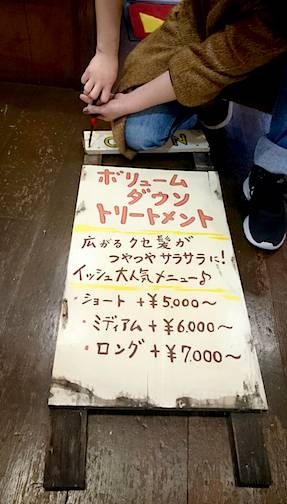 ボリューム
ダウン
トリートメント
広がるクセ髪が
つやつやサラサラに!
イッシュ大人気メニュー♪
・ショート +¥5,000〜
・ミディアム +¥6,000〜
・ロング +¥7,000〜